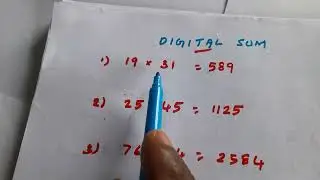 DIGITAL SUM
1) 19 × 31 = 589
2) 25 45 = 1125
3) 4 = 2584